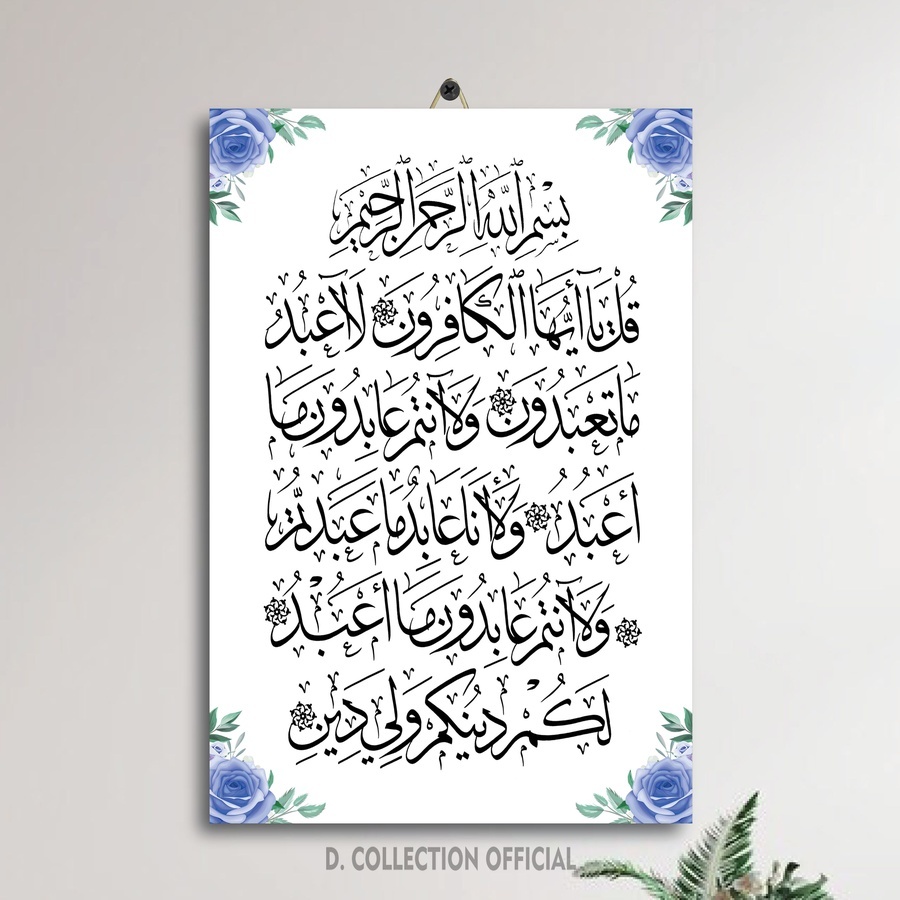 بِسْمِ اللَّهِ الرَّحْمَنِ الرَّحِيمِ
قُلْ يَا أَيُّهَا الْكَافِرُونَ ۞ لَا أَعْبُدُ
مَا تَعْبُدُونَ ۞ وَلَا أَنْتُمْ عَابِدُونَ مَا
أَعْبُدُ ۞ وَلَا أَنَا عَابِدٌ مَا عَبَدْتُمْ
۞ وَلَا أَنْتُمْ عَابِدُونَ مَا أَعْبُدُ ۞
لَكُمْ دِينُكُمْ وَلِيَ دِينِ ۞
D. COLLECTION OFFICIAL